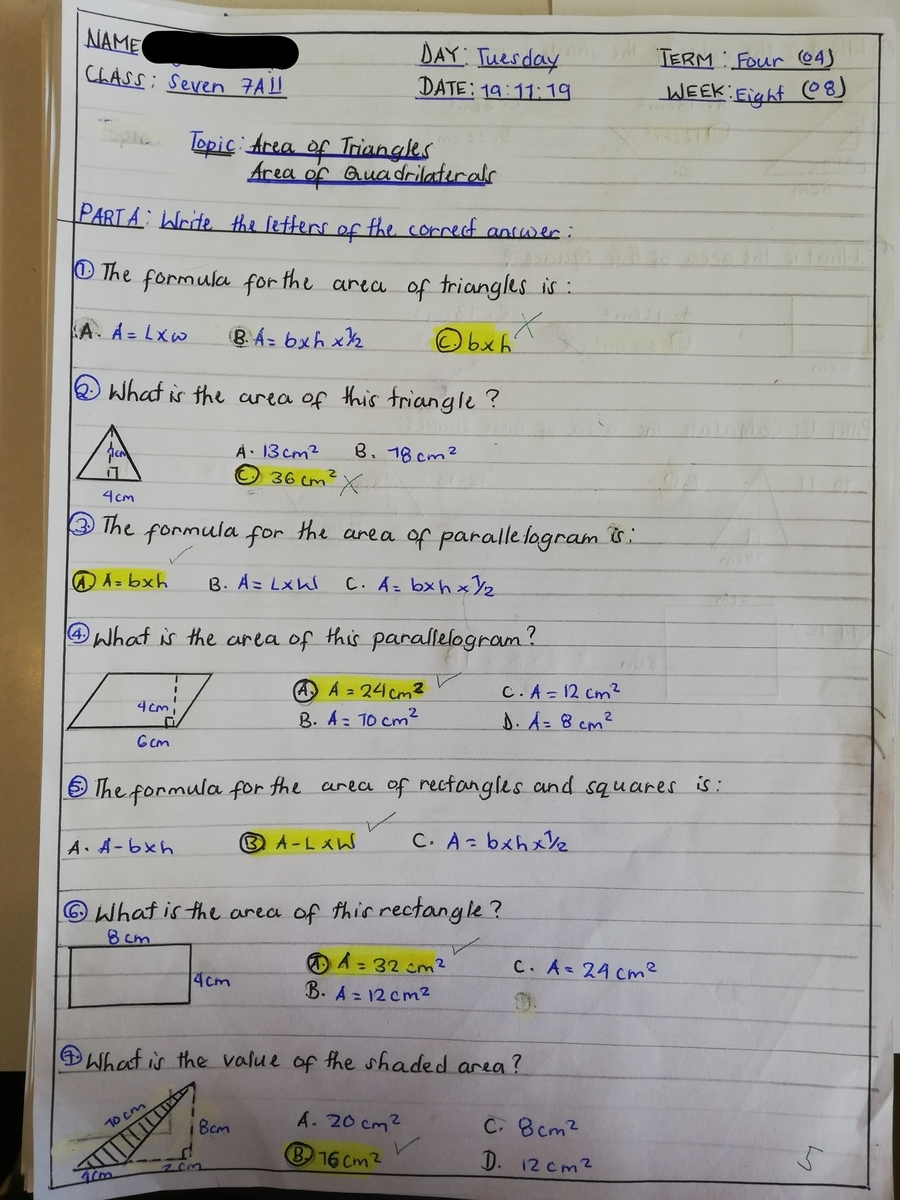 NAME
DAY: Tuesday
TERM: Four (04)
CLASS: Seven 7A11
DATE: 19:11:19
WEEK: Eight (08)
Topic: Area of Triangles
Area of Quadrilaterals
PART A: Write the letters of the correct answer:
1. The formula for the area of triangles is:
A. A = L x w B. A = b x h x 1/2 C. b x h
2. What is the area of this triangle?
A. 13cm² B. 18cm²
C. 36cm²
4cm
3. The formula for the area of parallelogram is:
A. A = b x h B. A = L x W C. A = b x h x 1/2
4. What is the area of this parallelogram?
A. A = 24cm² C. A = 12 cm²
4cm
B. A = 10 cm² D. A = 8 cm²
6cm
5. The formula for the area of rectangles and squares is:
A. A - b x h B. A - L x W C. A = b x h x 1/2
6. What is the area of this rectangle?
8cm
A. A = 32 cm² C. A = 24 cm²
4cm
B. A = 12cm²
7. What is the value of the shaded area?
10cm
8cm
A. 20 cm² C. 8cm²
B. 16cm² D. 12cm²
4cm 2cm
5